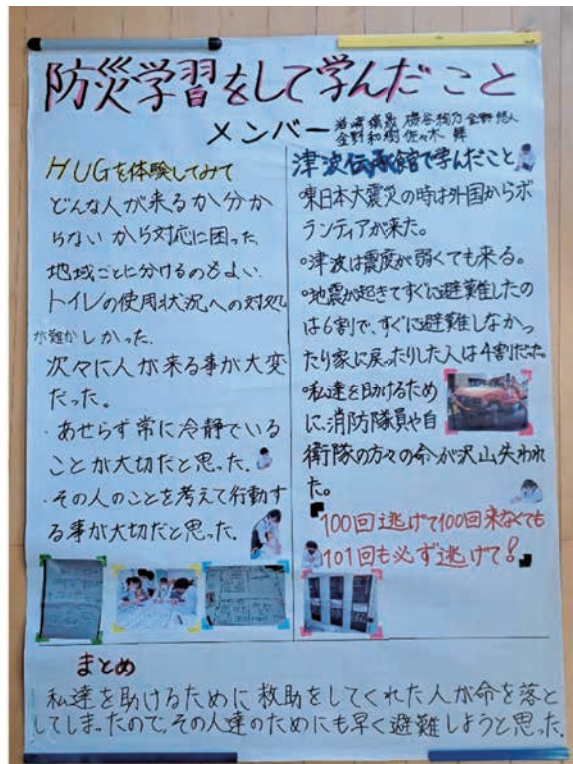 防災学習をして学んだこと
メンバー
金野和樹 佐々木
HUGを体験してみて
どんな人が来るか分か
らないから対応に困った
地域ごとに分けるのもよい.
トイレの使用状況への対処
が難かしかった.
次々に人が来る事が大変
だった。
・あせらず常に冷静でいる
ことが大切だと思った.
・その人のことを考えて行動す
る事が大切だと思った.
津波伝承館で学んだこと
・東日本大震災の時は外国からボ
ランティアが来た。
・津波は震度が弱くても来る。
・地震が起きてすぐに避難したの
は6割で、すぐに避難しなかっ
たり家に戻ったりした人は4割だった
・私達を助けるため
に、消防隊員や自
衛隊の方々の命が沢山失われ
た。
100回逃げて100回来なくても
101回も必ず逃げて!
まとめ
私達を助けるために救助をしてくれた人が命を落と
してしまったので、その人達のためにも早く避難しようと思った.